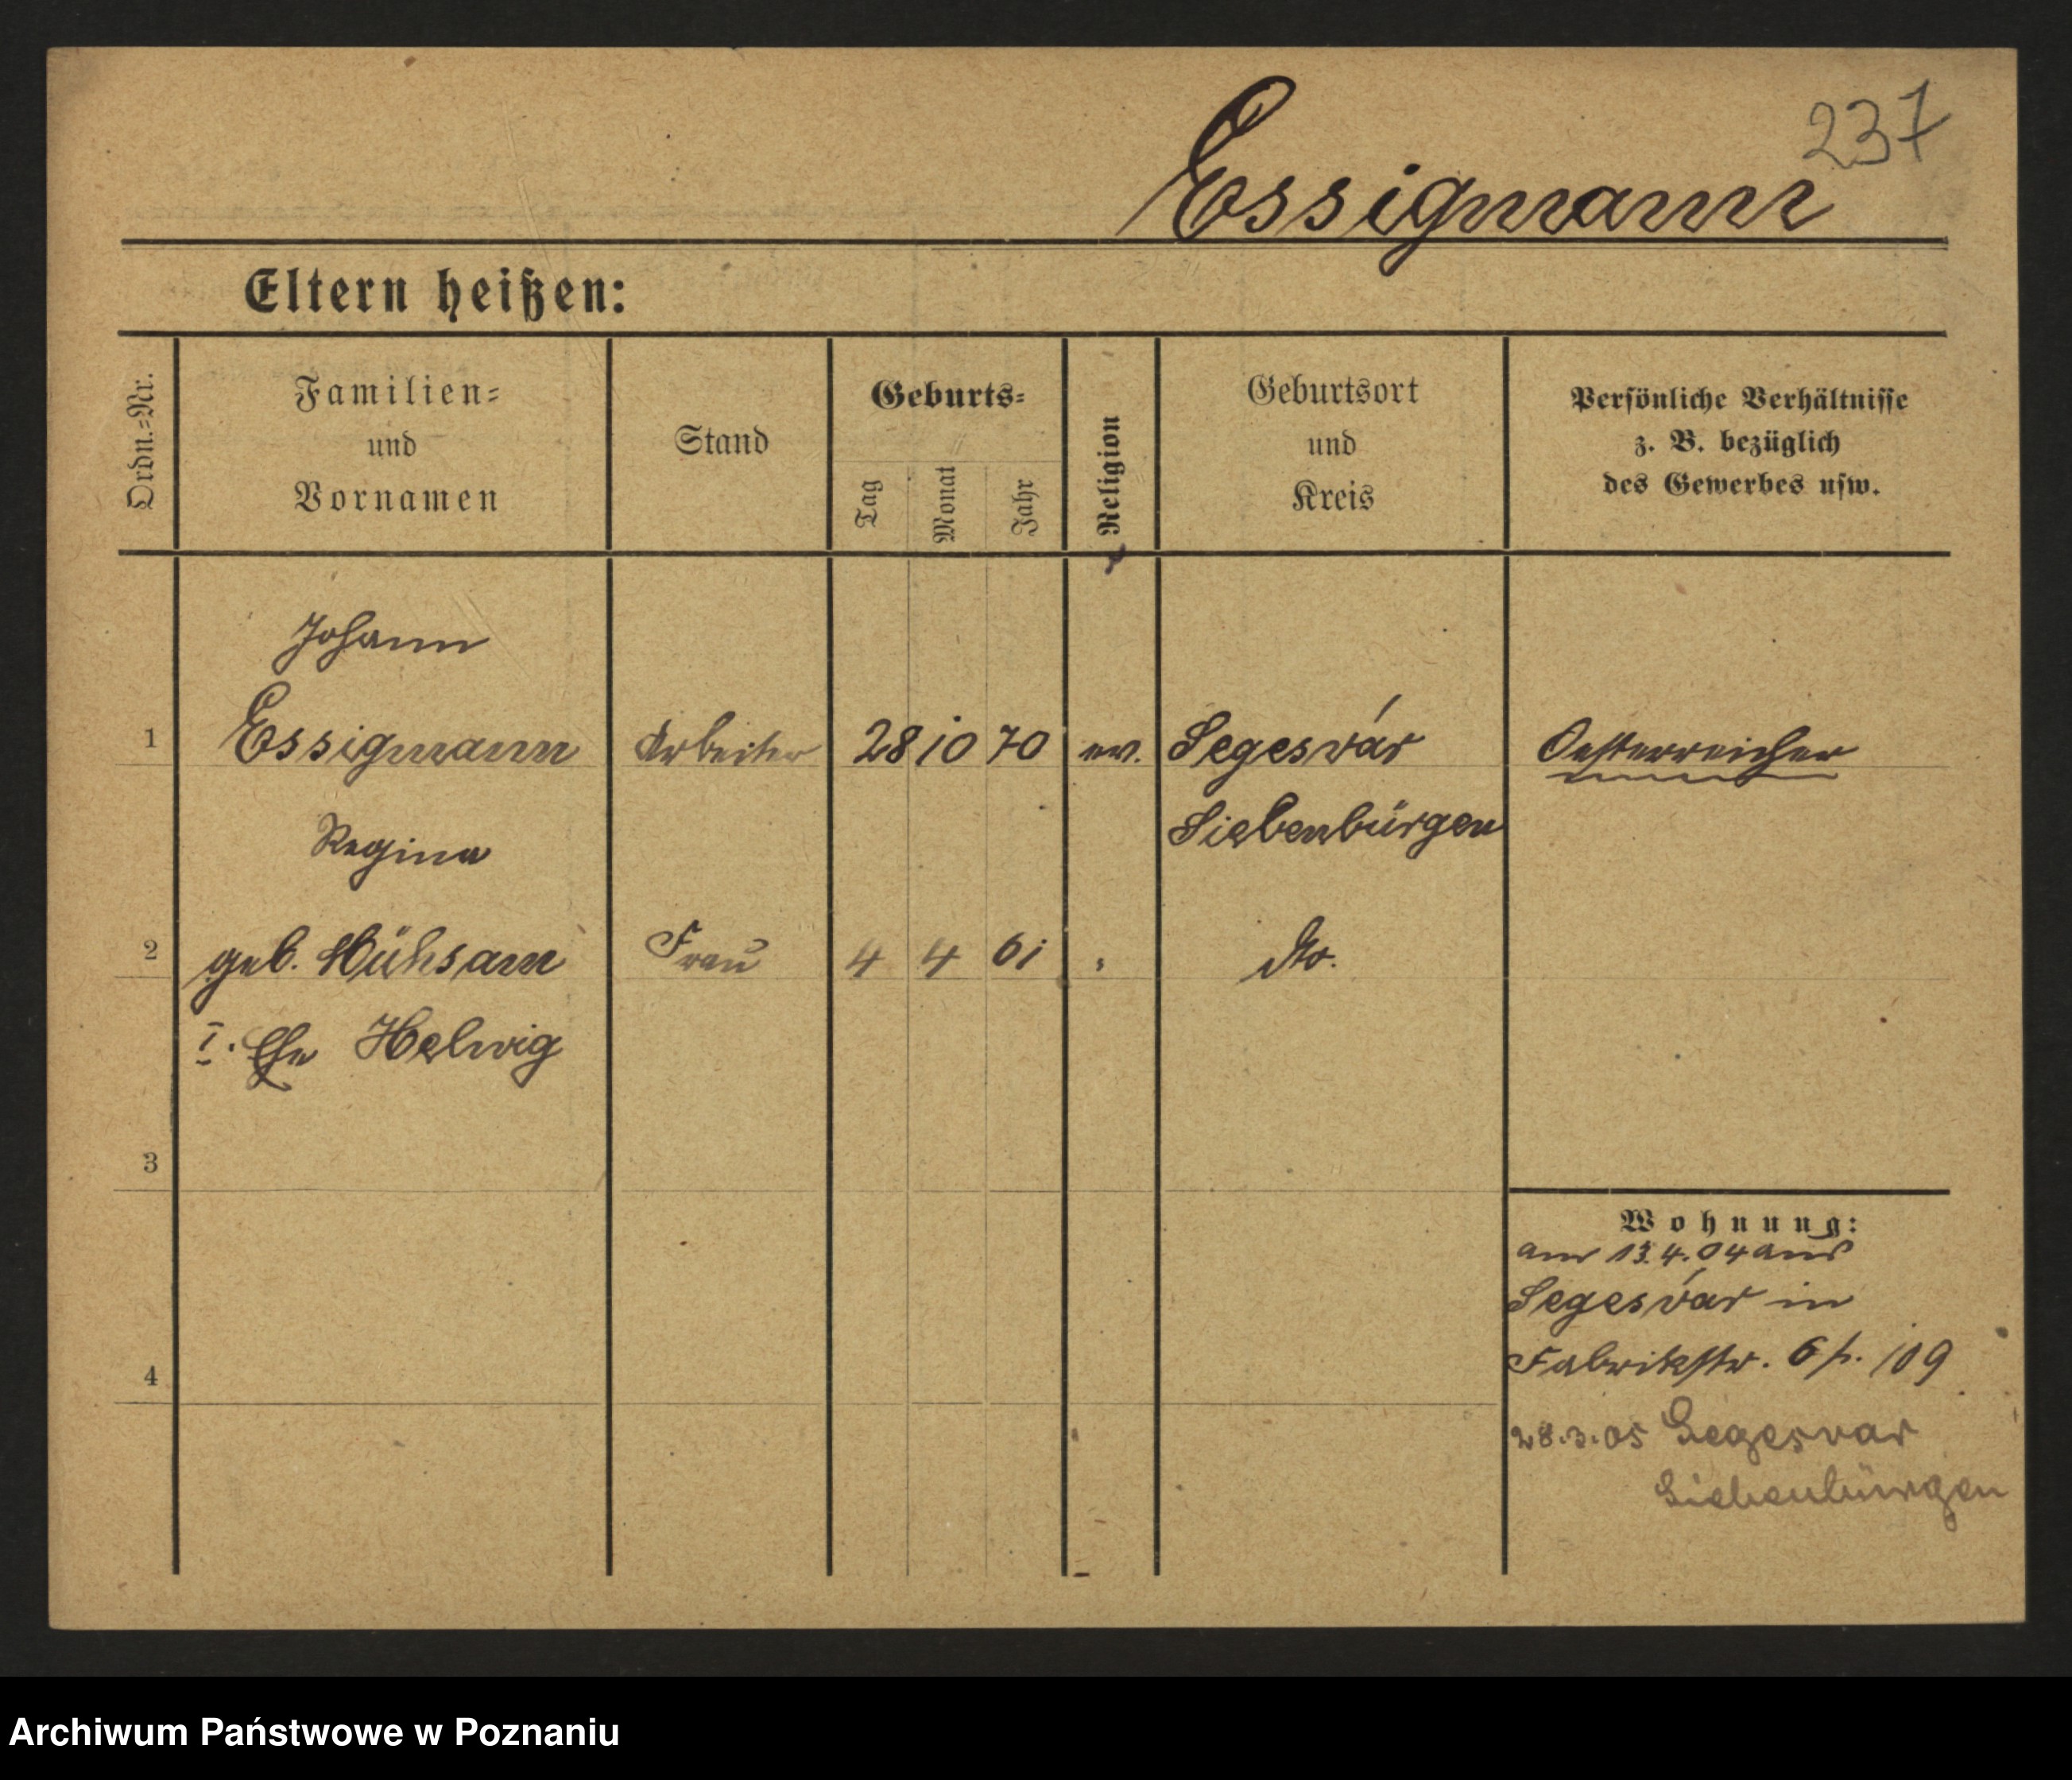 237
Essigmann
Eltern heißen:
Ordn.-Nr.
Familien-
und
Vornamen
Stand
Geburts-
Tag
Monat
Jahr
Religion
Geburtsort
und
Kreis
Persönliche Verhältnisse
z. B. bezüglich
des Gewerbes usw.
Johann
1 Essigmann Arbeiter 28 10 70 ev. Segesvár Oesterreicher
Siebenbürgen
Regina
2 geb. Mühsam Frau 4 4 61 " do.
I. Ehe Helwig
3
4
Wohnung:
am 13.4.04 aus
Segesvár in
Fabrikstr. 6 p. 109
28.3.05 Segesvar
Siebenbürgen
Archiwum Państwowe w Poznaniu